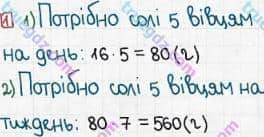 1 1) Потрібно солі 5 вівцям
на день: 16·5=80(г)
2) Потрібно солі 5 вівцям на
тиждень: 80·7=560(г)